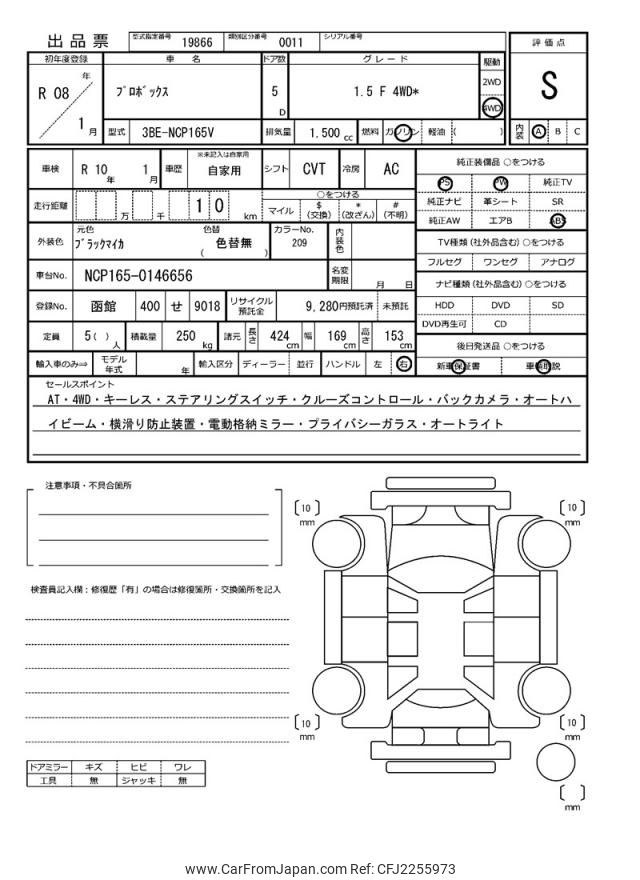 出品票 型式指定番号 19866 類別区分番号 0011 シリアル番号
初年度登録 車名 ドア数 グレード 駆動 評価点
R 08 年 1 月 プロボックス 5 D 1.5 F 4WD* 2WD 4WD S
型式 3BE-NCP165V 排気量 1.500 cc 燃料 ガソリン 軽油 ( ) 内装 A B C
車検 R 10 年 1 月 車歴 ※未記入は自家用 自家用 シフト CVT 冷房 AC
走行距離 万 千 1 0 km ○をつける マイル $ (交換) * (改ざん) # (不明)
外装色 元色 ブラックマイカ 色替 ( 色替無 ) カラーNo. 209 内装色
車台No. NCP165-0146656 名変期限 月 日
登録No. 函館 400 せ 9018 リサイクル預託金 9,280円預託済 未預託
定員 5( ) 人 積載量 250 kg 諸元 長さ 424 cm 幅 169 cm 高さ 153 cm
輸入車のみ⇒ モデル年式 年 輸入区分 ディーラー 並行 ハンドル 左 右
純正装備品 ○をつける
PS PW 純正TV
純正ナビ 革シート SR
純正AW エアB ABS
TV種類 (社外品含む) ○をつける
フルセグ ワンセグ アナログ
ナビ種類 (社外品含む) ○をつける
HDD DVD SD
DVD再生可 CD
後日発送品 ○をつける
新車保証書 車輌取説
セールスポイント
AT・4WD・キーレス・ステアリングスイッチ・クルーズコントロール・バックカメラ・オートハ
イビーム・横滑り防止装置・電動格納ミラー・プライバシーガラス・オートライト
注意事項・不具合箇所
検査員記入欄：修復歴「有」の場合は修復箇所・交換箇所を記入
[ 10 ] mm
[ 10 ] mm
[ 10 ] mm
[ 10 ] mm
[ ] mm
ドアミラー キズ ヒビ ワレ
工具 無 ジャッキ 無
www.CarFromJapan.com Ref: CFJ2255973